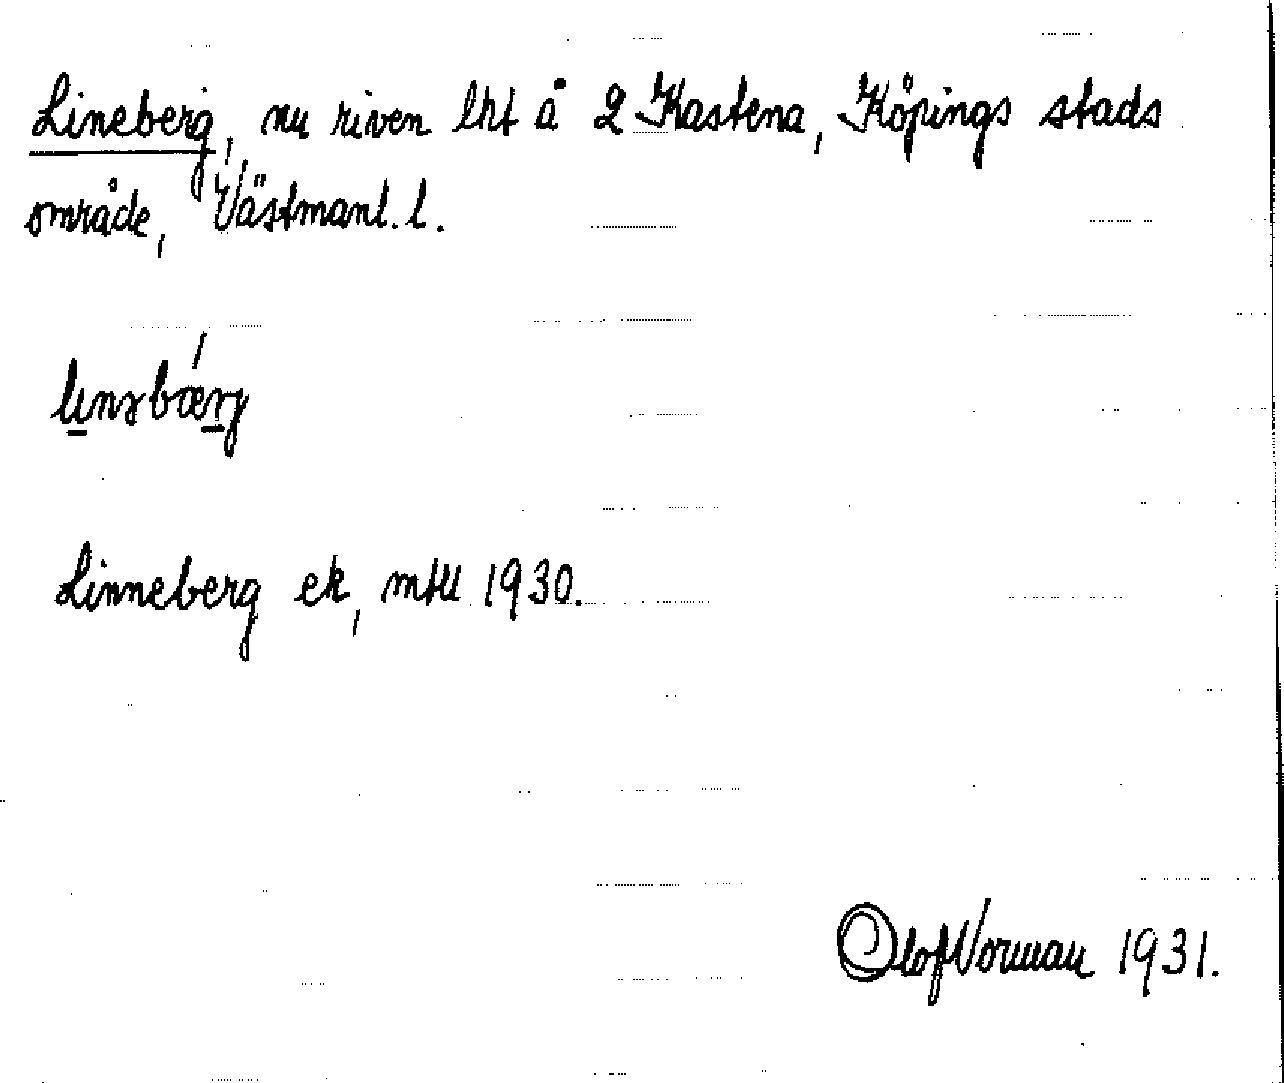 Lineberg, nu riven lht å 2 Kastena, Köpings stads
område, Västmanl. l.
Linneberg ek, mtll 1930.
Olof Norman 1931.